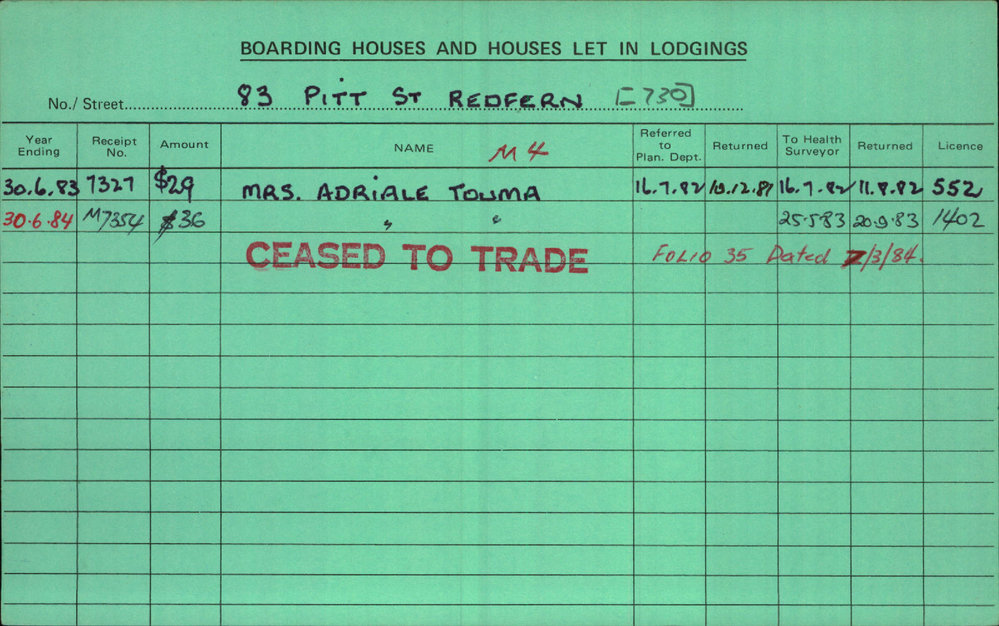 BOARDING HOUSES AND HOUSES LET IN LODGINGS
No./ Street 83 PITT ST REDFERN [730]
Year Ending Receipt No. Amount NAME M4 Referred to Plan. Dept. Returned To Health Surveyor Returned Licence
30.6.83 7327 $29 MRS. ADRIALE TOUMA 16.7.82 16.7.82 11.8.82 552
30.6.84 M7354 $36 " " 25.5.83 20.9.83 1402
CEASED TO TRADE FOLIO 35 Dated 7/3/84.